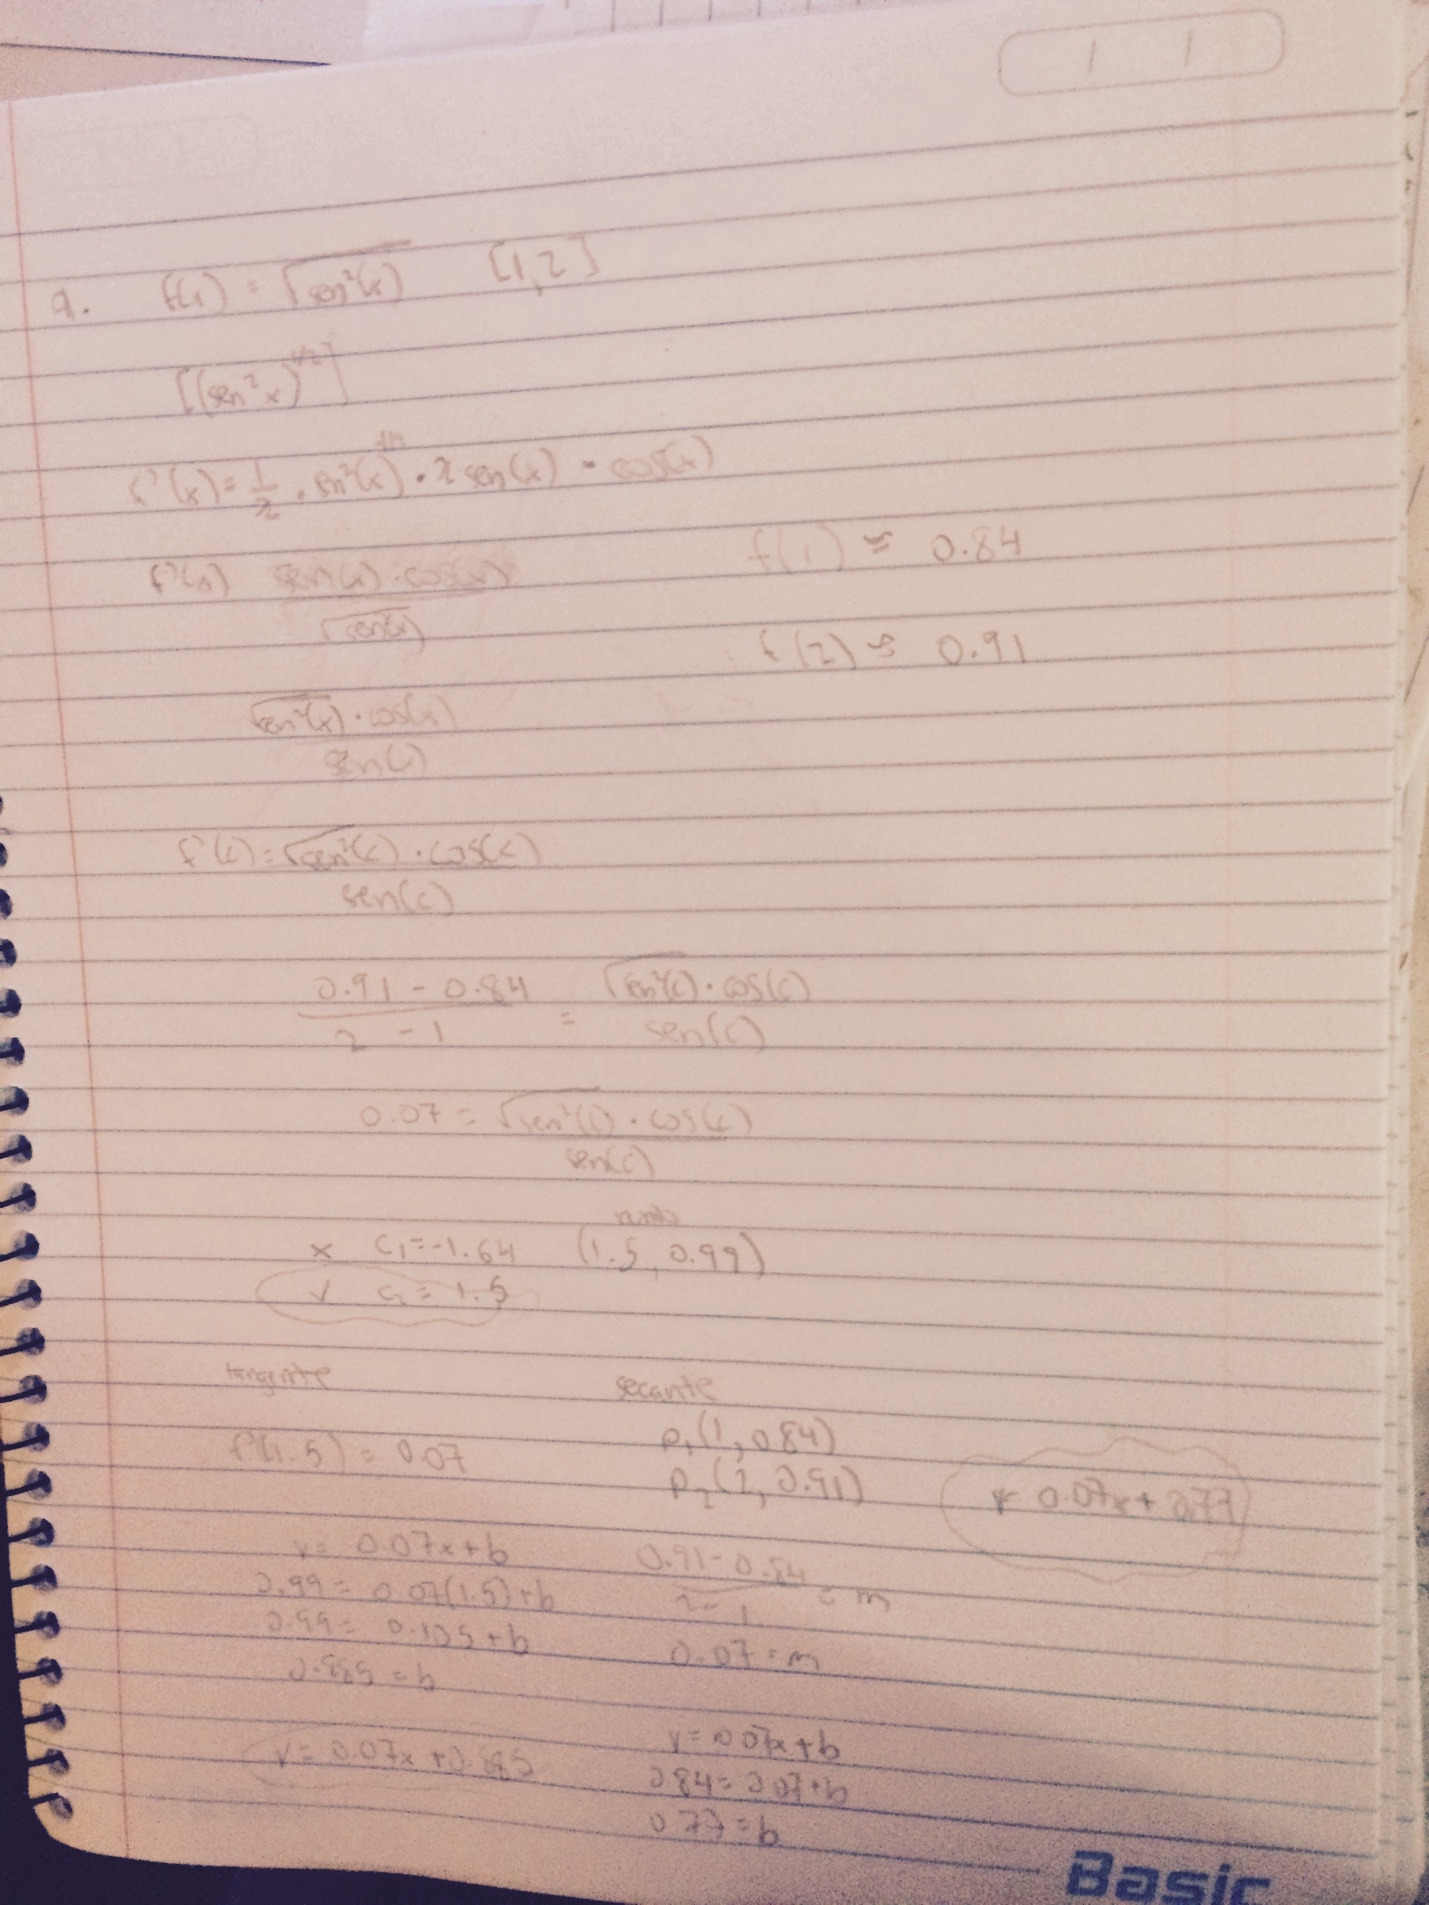 9. f(x) = √sen²(x) [1,2]
[(sen²x)^1/2]
f'(x) = 1/2 · sen²(x)^-1/2 · 2 sen(x) · cos(x)
f'(x) sen(x)·cos(x) / √sen(x)
f(1) ≈ 0.84
f(2) ≈ 0.91
√sen²(x) · cos(x) / sen(x)
f'(c) = √sen²(c) · cos(c) / sen(c)
0.91 - 0.84 / 2 - 1 = √sen²(c) · cos(c) / sen(c)
0.07 = √sen²(c) · cos(c) / sen(c)
punto
x c₁ = -1.64 (1.5, 0.99)
✓ c₂ = 1.5
tangente
f'(1.5) = 0.07
y = 0.07x + b
0.99 = 0.07(1.5) + b
0.99 = 0.105 + b
0.885 = b
y = 0.07x + 0.885
secante
P₁(1, 0.84)
P₂(2, 0.91)
0.91 - 0.84 / 2 - 1 = m
0.07 = m
y = 0.07x + b
0.84 = 0.07 + b
0.77 = b
y = 0.07x + 0.77
Basic